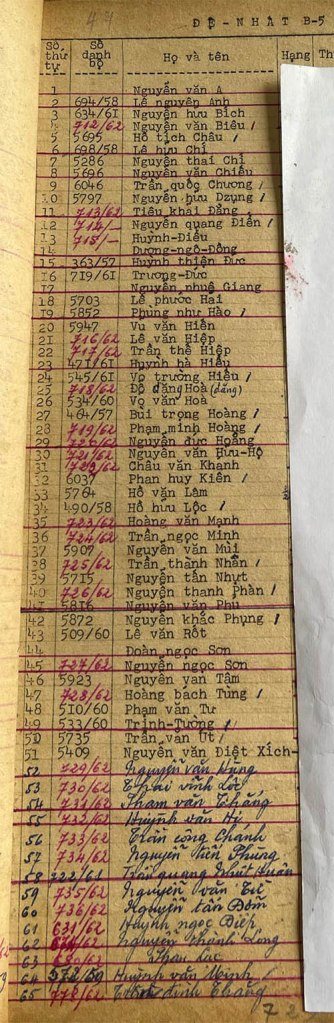 47
ĐỆ-NHẤT B-5
Số thứ tự Số danh bộ Họ và tên Hạng Th
1 Nguyễn văn A
2 694/58 Lê nguyên Anh
3 634/61 Nguyễn hưu Bích
4 712/62 Nguyễn văn Biêu /
5 5695 Hồ tịch Châu /
6 698/58 Lê hưu Chỉ
7 5286 Nguyễn thai Chỉ
8 5696 Nguyễn văn Chiểu
9 6046 Trần quốc Chương /
10 5797 Nguyễn hưu Dzụng /
11 713/62 Tiêu khai Đẳng
12 714/- Nguyễn quang Điển /
13 718/- Huỳnh-Điểu
14 Dương-ngô-Đồng
15 363/57 Huỳnh thiện Đức
16 719/61 Trương-Đức
17 Nguyễn nhuệ Giang
18 5703 Lê phước Hai
19 5852 Phùng như Hào /
20 5947 Vu văn Hiền
21 716/62 Lê văn Hiệp
22 717/62 Trần thế Hiệp
23 471/61 Huỳnh bá Hiếu
24 545/61 Vo trường Hiếu /
25 718/62 Đỗ đăng Hoà (đăng)
26 534/60 Vo văn Hoà
27 464/57 Bùi trọng Hoàng /
28 719/62 Phạm minh Hoàng /
29 720/62 Nguyễn đức Hoằng
30 721/62 Nguyễn văn Hưu-Hộ
31 722/62 Châu văn Khanh
32 6037 Phan huy Kiên /
33 5764 Hồ văn Lâm
34 490/58 Hồ hưu Lộc /
35 723/62 Hoàng văn Mạnh
36 724/62 Trần ngọc Minh
37 5907 Nguyễn văn Mùi
38 725/62 Trần thành Nhân /
39 5715 Nguyễn tấn Nhựt
40 726/62 Nguyễn thanh Phàn /
41 5816 Nguyễn văn Phu
42 5872 Nguyễn khắc Phụng /
43 509/60 Lê văn Rốt
44 Đoàn ngọc Sơn
45 727/62 Nguyễn ngọc Sơn
46 5923 Nguyễn van Tâm
47 728/62 Hoàng bach Tùng /
48 510/60 Phạm văn Tư
49 533/60 Trịnh-Tường /
50 5735 Trần văn Út /
51 5409 Nguyễn văn Diệt Xích-
52 729/62 Nguyễn văn Hùng
53 730/62 Thái vĩnh Lộc
54 731/62 Phạm văn Thắng
55 732/62 Huỳnh văn Hị
56 733/62 Trần công Chanh
57 734/62 Nguyễn tiến Phùng
58 322/61 Trần quang Nhứt
59 735/62 Nguyễn văn Tề
60 736/62 Nguyễn tấn Đôm
61 631/62 Huỳnh ngọc Điệp
62 Nguyễn thành Long
63 630/62 Phan Lạc
64 572/59 Huỳnh văn Minh /
65 772/62 đình Thắng